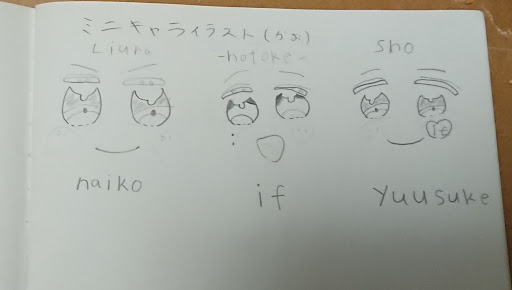 ミニキャライラスト(かお)
Liura -hotoke- sho
naiko if yuusuke